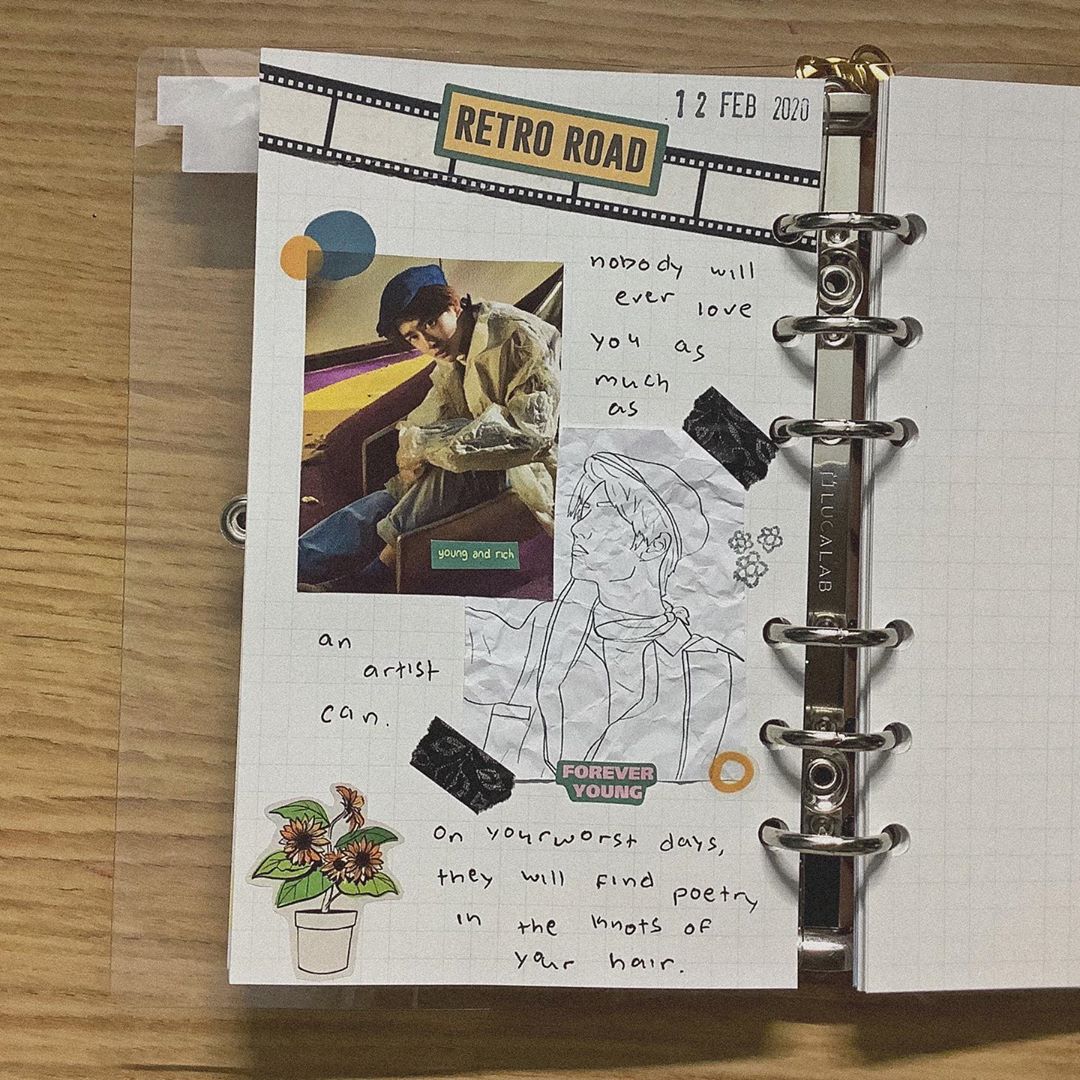 12 FEB 2020
RETRO ROAD
nobody will
ever love
you as
much
as
young and rich
an
artist
can.
FOREVER
YOUNG
On your worst days,
they will find poetry
in the knots of
your hair.
LUCALAB